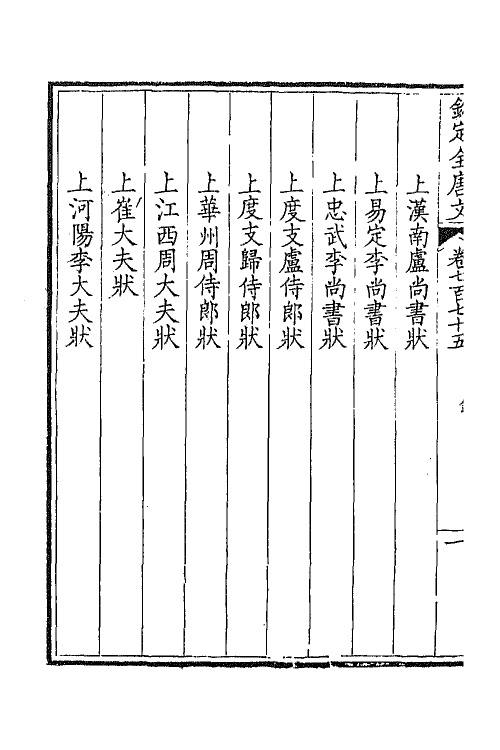 欽定全唐文
卷七百七十五
一
上漢南盧尚書狀
上易定李尚書狀
上忠武李尚書狀
上度支盧侍郎狀
上度支歸侍郎狀
上華州周侍郎狀
上江西周大夫狀
上崔大夫狀
上河陽李大夫狀